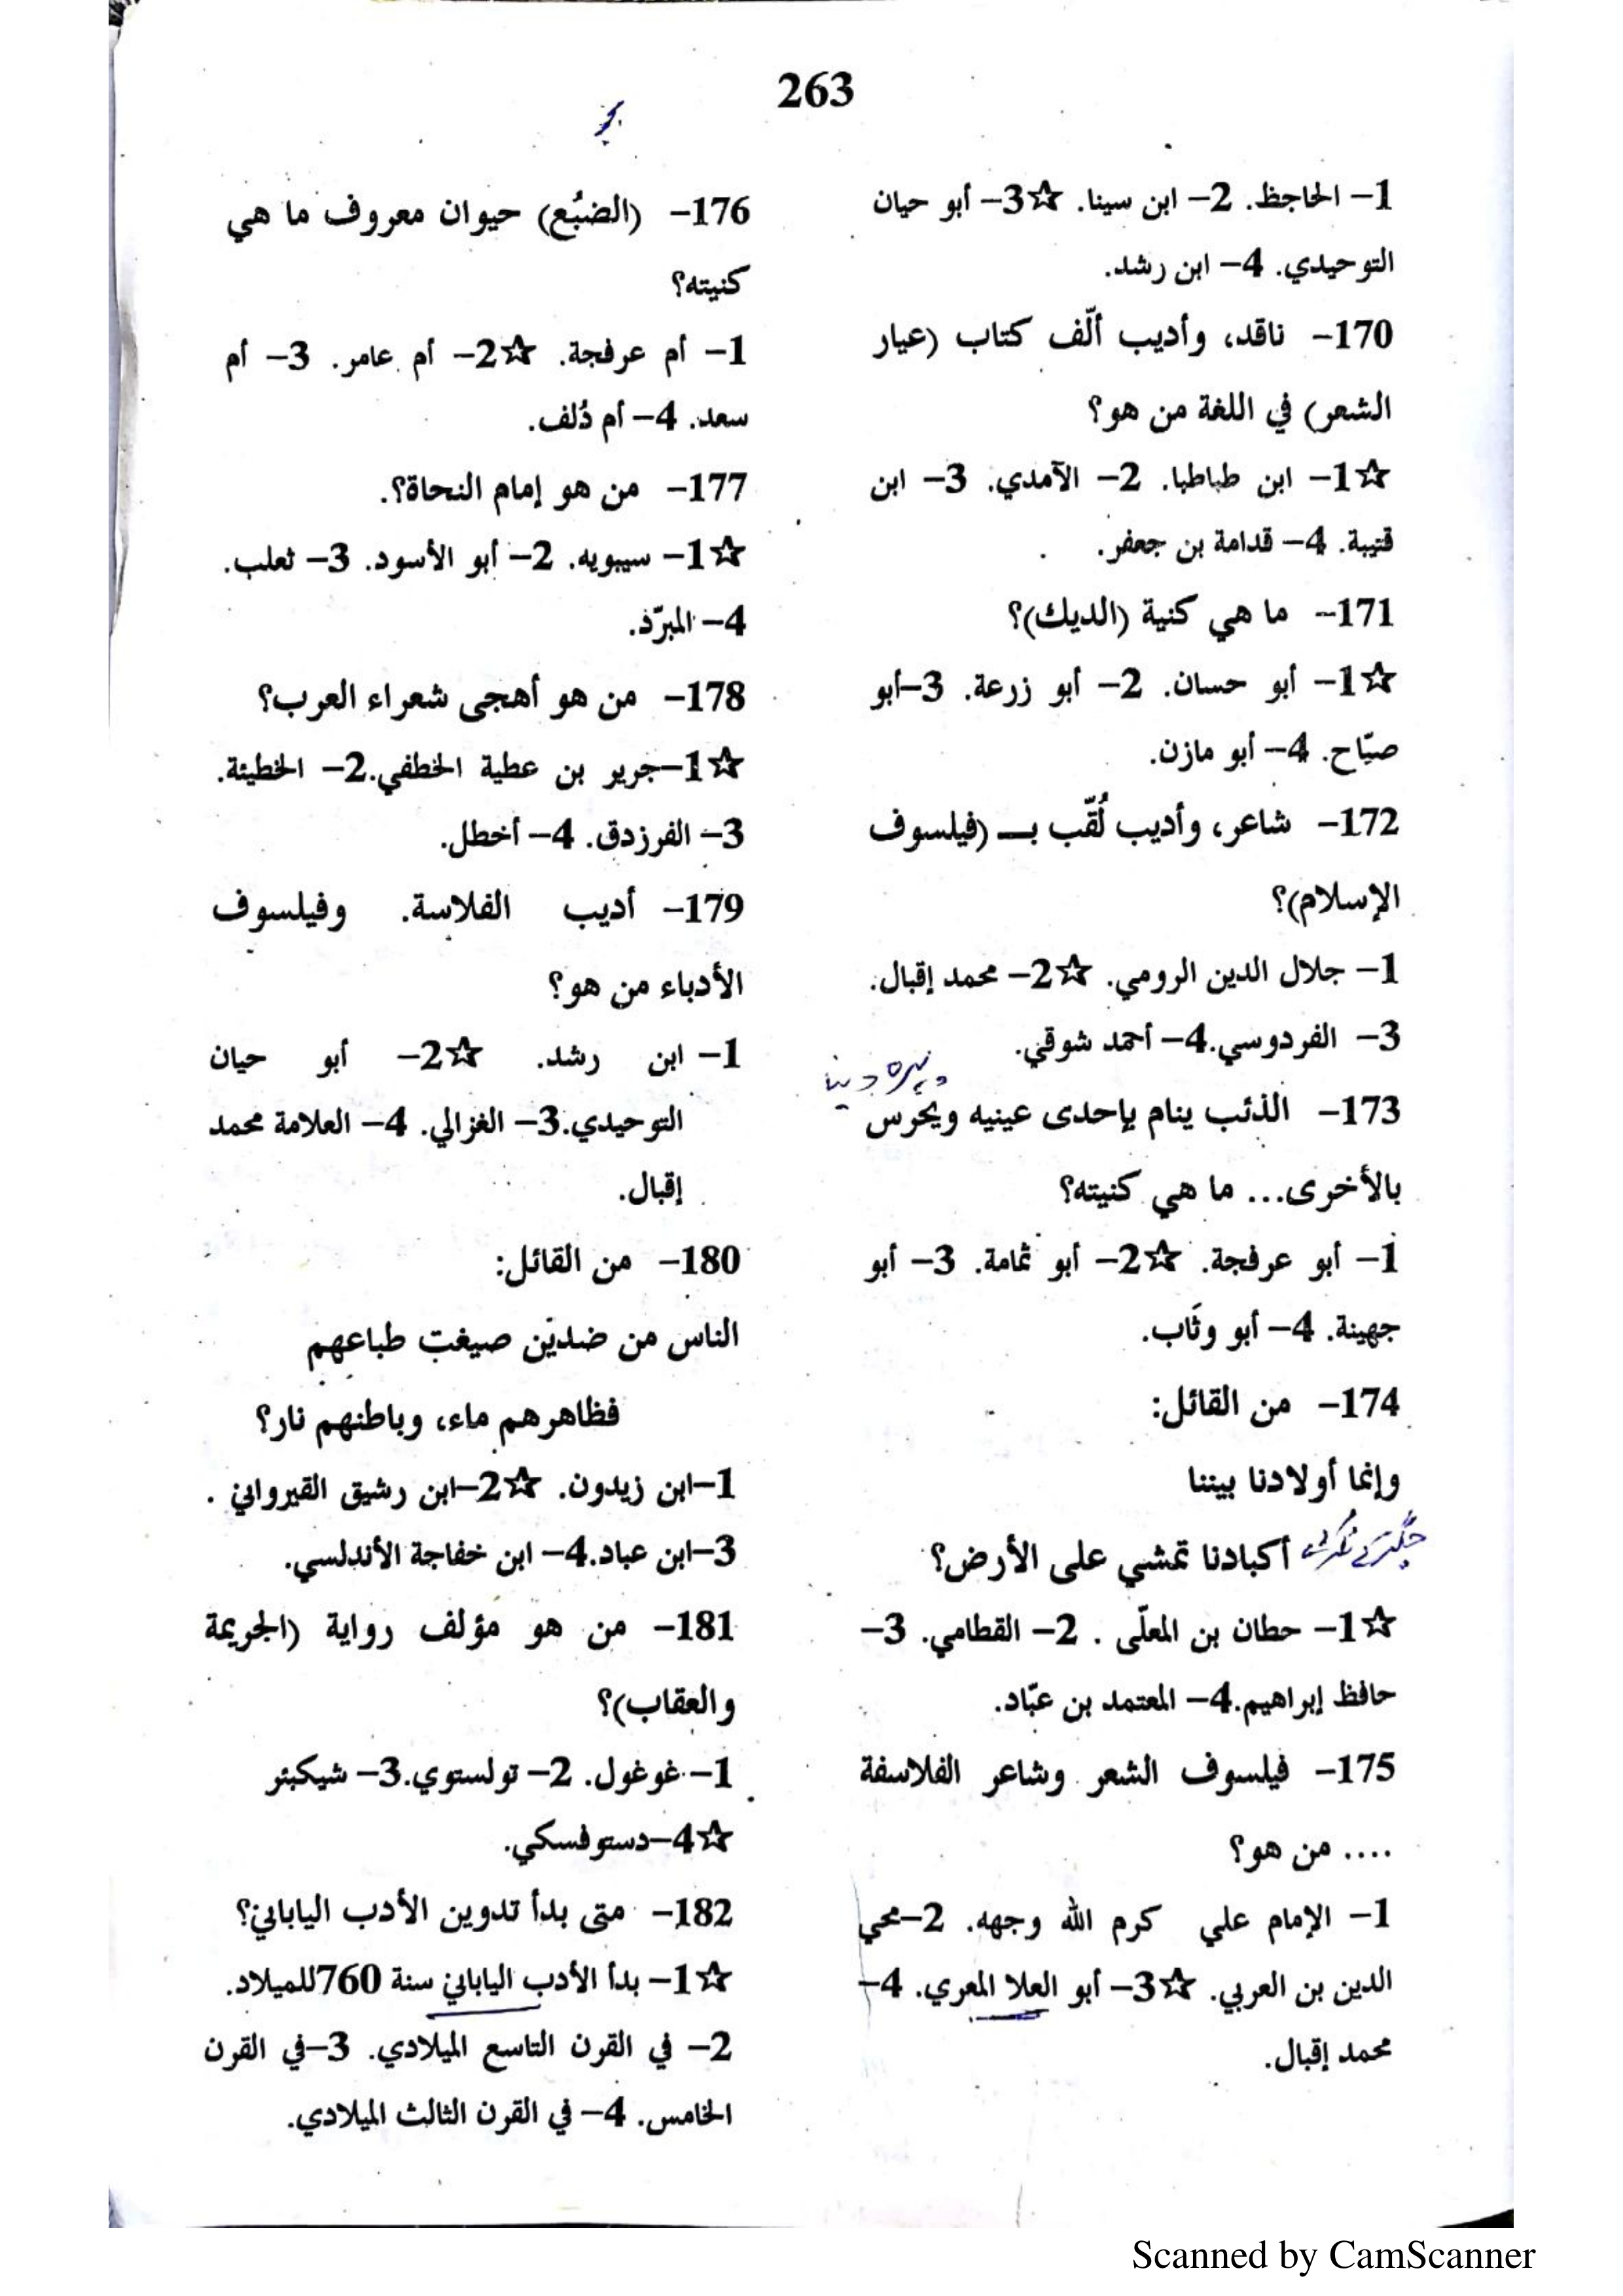 263
1- الحاجظ. 2- ابن سينا. ☆3- أبو حيان
التوحيدي. 4- ابن رشد.
170- ناقد، وأديب ألّف كتاب (عيار
الشعر) في اللغة من هو؟
☆1- ابن طباطبا. 2- الآمدي. 3- ابن
قتيبة. 4- قدامة بن جعفر.
171- ما هي كنية (الديك)؟
☆1- أبو حسان. 2- أبو زرعة. 3-أبو
صيّاح. 4- أبو مازن.
172- شاعر، وأديب لُقّب بـ (فيلسوف
الإسلام)؟
1- جلال الدين الرومي. ☆2- محمد إقبال.
3- الفردوسي.4- أحمد شوقي.
173- الذئب ينام بإحدى عينيه ويحرس
بالأخرى... ما هي كنيته؟
1- أبو عرفجة. ☆2- أبو ثمامة. 3- أبو
جهينة. 4- أبو وثَاب.
174- من القائل:
وإنما أولادنا بيننا
أكبادنا تمشي على الأرض؟
☆1- حطان بن المعلّى . 2- القطامي. 3-
حافظ إبراهيم.4- المعتمد بن عبّاد.
175- فيلسوف الشعر وشاعر الفلاسفة
.... من هو؟
1- الإمام علي كرم الله وجهه. 2-محي
الدين بن العربي. ☆3- أبو العلا المعري. 4-
محمد إقبال.
176- (الضبُع) حيوان معروف ما هي
كنيته؟
1- أم عرفجة. ☆2- أم عامر. 3- أم
سعد. 4- أم دُلف.
177- من هو إمام النحاة؟.
☆1- سيبويه. 2- أبو الأسود. 3- ثعلب.
4- المبرّد.
178- من هو أهجى شعراء العرب؟
☆1-جرير بن عطية الخطفي.2- الخطيئة.
3- الفرزدق. 4- أخطل.
179- أديب الفلاسة. وفيلسوف
الأدباء من هو؟
1- ابن رشد. ☆2- أبو حيان
التوحيدي.3- الغزالي. 4- العلامة محمد
إقبال.
180- من القائل:
الناس من ضديْن صيغت طباعهم
فظاهرهم ماء، وباطنهم نار؟
1-ابن زيدون. ☆2-ابن رشيق القيرواني .
3-ابن عباد.4- ابن خفاجة الأندلسي.
181- من هو مؤلف رواية (الجريمة
والعقاب)؟
1- غوغول. 2- تولستوي.3- شيكبئر
☆4-دستوفسكي.
182- متى بدأ تدوين الأدب الياباني؟
☆1- بدأ الأدب الياباني سنة 760للميلاد.
2- في القرن التاسع الميلادي. 3-في القرن
الخامس. 4- في القرن الثالث الميلادي.
Scanned by CamScanner